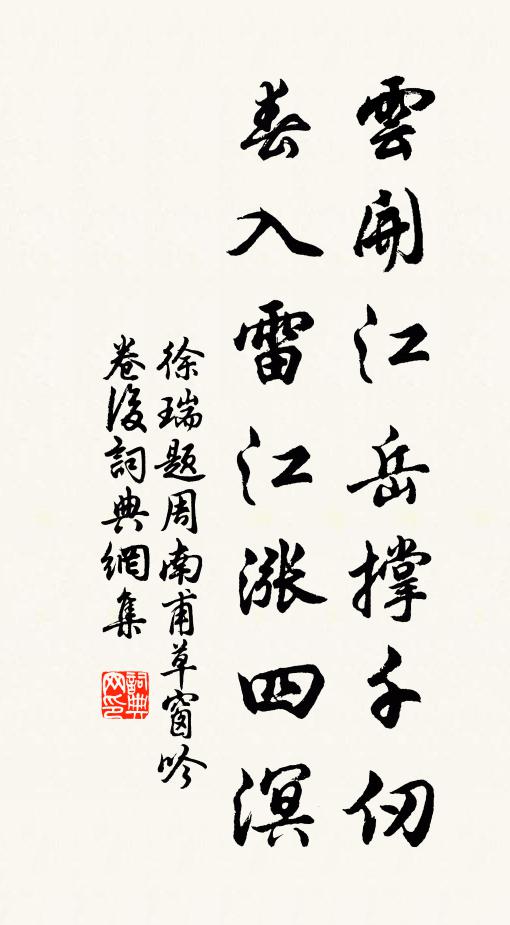 雲開江岳撐千仞
春入雷江漲四溟
徐瑞題周南甫草窗吟
卷後詞典網集
詞典
网印